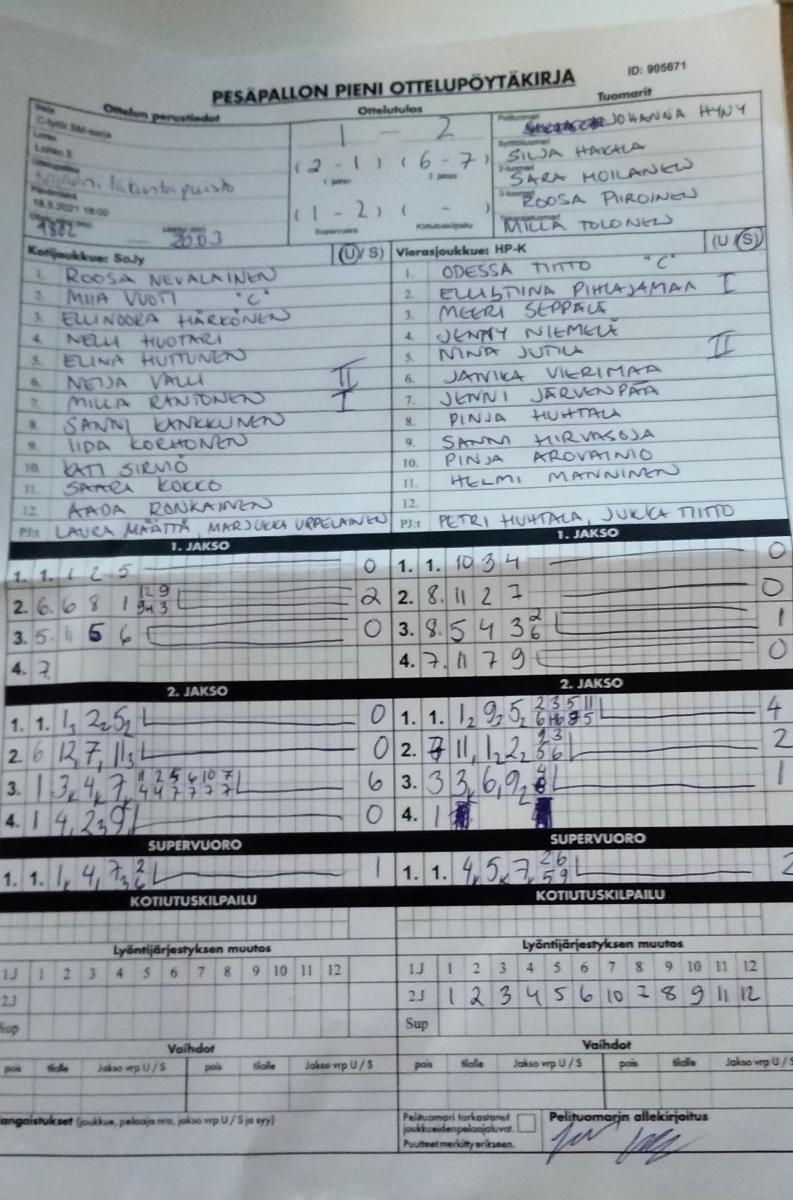 PESÄPALLON PIENI OTTELUPÖYTÄKIRJA
ID: 905671
Ottelun perustiedot
Ottelutulos
Tuomarit
1 - 2
(2 - 1) (6 - 7)
1. jakso 2. jakso
(1 - 2) ( - )
Supervuoro Kotiutuskilpailu
JOHANNA HYNY
SILJA HAKALA
SARA MOILANEN
ROOSA PIIROINEN
MILLA TOLONEN
18.5.2021 18:00
20.03
Kotijoukkue: SoJy (U/ S)
Vierasjoukkue: HP-K (U /S)
1. ROOSA NEVALAINEN
2. MIIA VUOTI "C"
3. ELLINOORA HÄRKÖNEN
4. NELLI HUOTARI
5. ELINA HUTTUNEN
6. NEIJA VALLI II
7. MILLA RANTONEN I
8. SANNI KANKKUNEN
9. IIDA KORHONEN
10. KATI SIRVIÖ
11. SAARA KOKKO
12. AADA RONKAINEN
PJ:t LAURA MÄÄTTÄ, MARJUKKA URPELAINEN
1. ODESSA TIITTO "C"
2. PIHLAJAMAA I
3. MEERI SEPPÄLÄ
4. JENNY NIEMELÄ
5. NINA JUTILA II
6. JANIKA VIERIMAA
7. JENNI JÄRVENPÄÄ
8. PINJA HUHTALA
9. SANNI HIRVASOJA
10. PINJA AROVAINIO
11. HELMI MANNINEN
12.
PJ:t PETRI HUHTALA, JUKKA TIITTO
1. JAKSO
1. 1. 1 2 5 0
2. 6. 6 8 1 2
3. 5. 11 5 6 0
4. 7.
1. JAKSO
1. 1. 10 3 4 0
2. 8. 11 2 7 0
3. 8. 5 4 3 2 6 1
4. 7. 11 7 9 0
2. JAKSO
1. 1. 1 2 5 0
2. 6 12 7 11 0
3. 1 3 4 7 6
4. 1 4 2 9 0
2. JAKSO
1. 1. 1 9 5 4
2. 11 1 2 2
3. 3 3 6 9 1
4. 1
SUPERVUORO
1. 1. 1 4 7 1
SUPERVUORO
1. 1. 4 5 7 26 59 2
KOTIUTUSKILPAILU
KOTIUTUSKILPAILU
Lyöntijärjestyksen muutos
1.J 1 2 3 4 5 6 7 8 9 10 11 12
2.J
Sup
Lyöntijärjestyksen muutos
1.J 1 2 3 4 5 6 7 8 9 10 11 12
2.J 1 2 3 4 5 6 10 7 8 9 11 12
Sup
Vaihdot
pois tilalle Jakso vrp U / S pois tilalle Jakso vrp U / S
Vaihdot
pois tilalle Jakso vrp U / S pois tilalle Jakso vrp U / S
angaistukset (joukkue, pelaaja nro, jakso vrp U / S ja syy)
Pelituomari tarkastanut
joukkueiden pelaajaluvat.
Puutteet merkitty erikseen.
Pelituomarin allekirjoitus